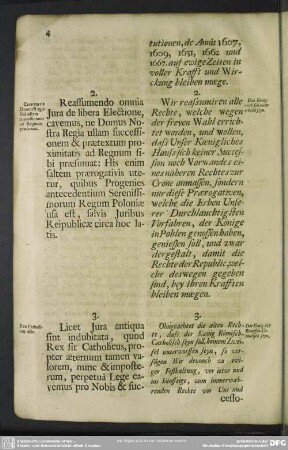 4
tutionen, de Annis 1607.
1609, 1631, 1662 und
1667. auf ewige Zeiten in
voller Krafft und Wir-
ckung bleiben mœge.
2.
Reassumendo omnia
Jura de libera Electione,
cavemus, ne Domus No-
stra Regia ullam successi-
onem & prætextum pro-
ximitatis ad Regnum si-
bi præsumat: His enim
saltem prærogativis ute-
tur, quibus Progenies
antecedentium Serenissi-
morum Regum Poloniæ
usa est, salvis Juribus
Reipublicæ circa hoc la-
tis.
2.
Wir reasumiren alle
Rechte, welche wegen
der freyen Wahl errich-
tet worden, und wollen,
daß Unser Kœnigliches
Hauß sich keiner Succes-
sion noch Vorwandes ei-
nes näheren Rechtes zur
Crone anmassen, sondern
nur diese Prærogativen,
welche die Erben Unse-
rer Durchlauchtigsten
Vorfahren, der Könige
in Pohlen genossen haben,
geniessen soll, und zwar
dergestalt, damit die
Rechte der Republic, wel-
che deswegen gegeben
sind, bey ihren Krafften
bleiben mœgen.
3.
Licet Jura antiqua
sint indubitata, quod
Rex sit Catholicus, pro-
pter æternum tamen va-
lorem, nunc & imposte-
rum, perpetuâ Lege ca-
vemus pro Nobis & suc-
3.
Obngeachtet die alten Rech-
te, daß der Kœnig Römisch-
Catholisch seyn soll, keinem Zwei-
fel unterworffen seyn, so ver-
fügen Wir dennoch zu ewi-
ger Festhaltung, vor ietzo und
ins künftige, vom immerwäh-
renden Rechte vor Uns und
cesso-